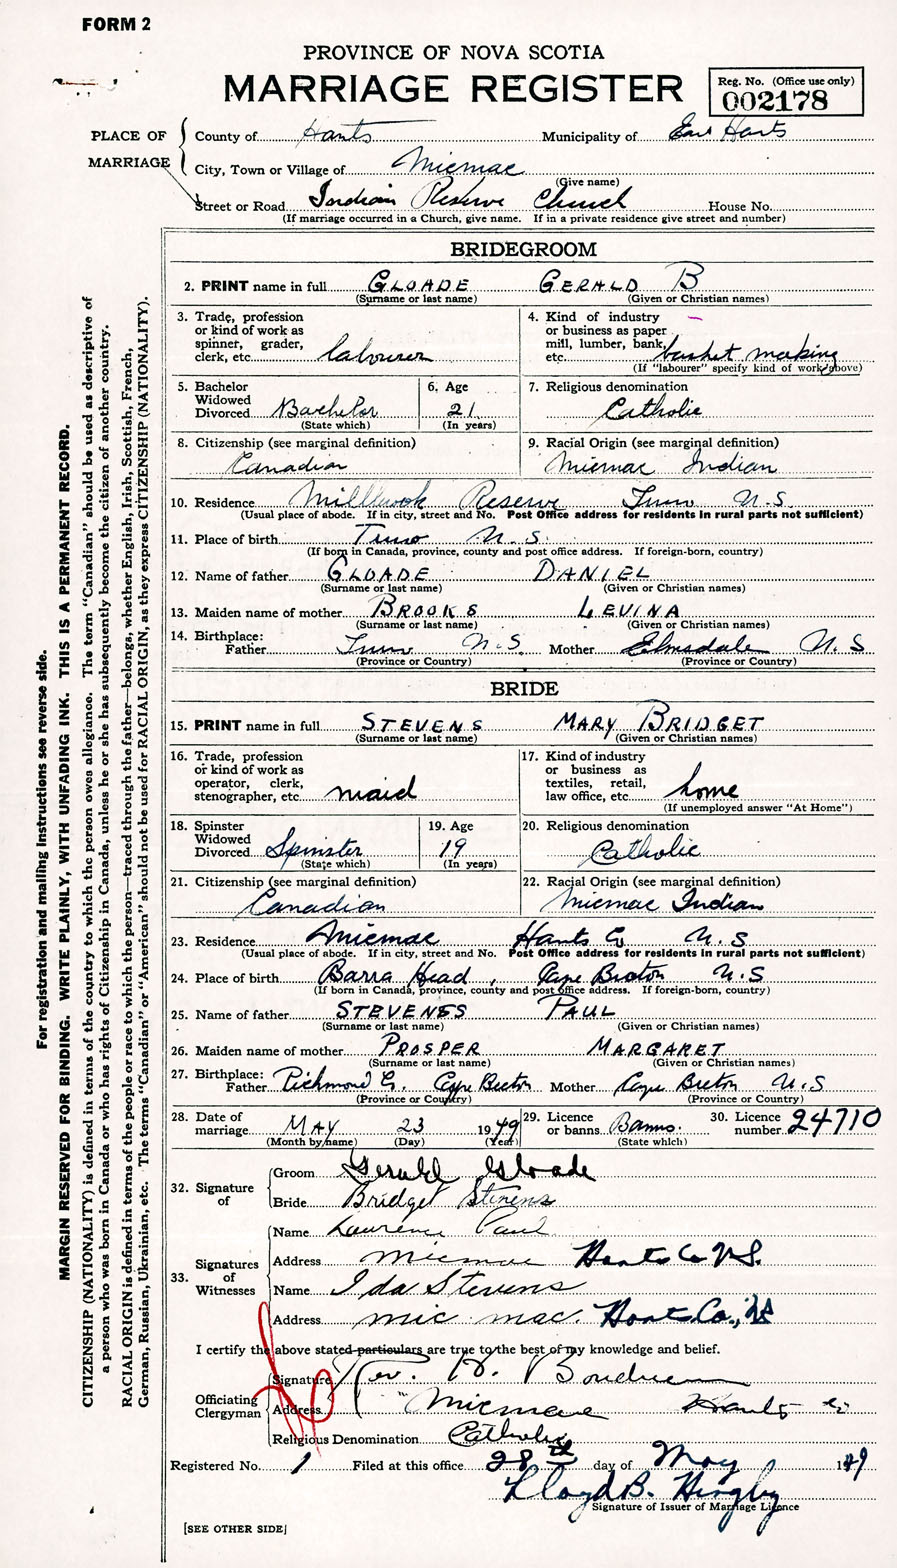 FORM 2
PROVINCE OF NOVA SCOTIA
MARRIAGE REGISTER
Reg. No. (Office use only)
002178
PLACE OF MARRIAGE
County of Hants Municipality of East Hants
City, Town or Village of Micmac
(Give name)
Street or Road Indian Reserve Church House No.
(If marriage occurred in a Church, give name. If in a private residence give street and number)
BRIDEGROOM
2. PRINT name in full GLOADE GERALD B
(Surname or last name) (Given or Christian names)
3. Trade, profession or kind of work as spinner, grader, clerk, etc. labourer
4. Kind of industry or business as paper mill, lumber, bank, etc. basket making
(If "labourer" specify kind of work above)
5. Bachelor Widowed Divorced Bachelor
(State which)
6. Age 21
(In years)
7. Religious denomination Catholic
8. Citizenship (see marginal definition) Canadian
9. Racial Origin (see marginal definition) Micmac Indian
10. Residence Millbrook Reserve Truro N.S.
(Usual place of abode. If in city, street and No. Post Office address for residents in rural parts not sufficient)
11. Place of birth Truro N.S.
(If born in Canada, province, county and post office address. If foreign-born, country)
12. Name of father GLOADE DANIEL
(Surname or last name) (Given or Christian names)
13. Maiden name of mother BROOKS LEVINA
(Surname or last name) (Given or Christian names)
14. Birthplace: Father Truro N.S. Mother Elmsdale N.S
(Province or Country) (Province or Country)
BRIDE
15. PRINT name in full STEVENS MARY BRIDGET
(Surname or last name) (Given or Christian names)
16. Trade, profession or kind of work as operator, clerk, stenographer, etc. maid
17. Kind of industry or business as textiles, retail, law office, etc. home
(If unemployed answer "At Home")
18. Spinster Widowed Divorced Spinster
(State which)
19. Age 19
(In years)
20. Religious denomination Catholic
21. Citizenship (see marginal definition) Canadian
22. Racial Origin (see marginal definition) Micmac Indian
23. Residence Micmac Hants Co N.S
(Usual place of abode. If in city, street and No. Post Office address for residents in rural parts not sufficient)
24. Place of birth Barra Head, Cape Breton N.S
(If born in Canada, province, county and post office address. If foreign-born, country)
25. Name of father STEVENS PAUL
(Surname or last name) (Given or Christian names)
26. Maiden name of mother PROSPER MARGARET
(Surname or last name) (Given or Christian names)
27. Birthplace: Father Richmond Co. Cape Breton Mother Cape Breton N.S
(Province or Country) (Province or Country)
28. Date of marriage MAY 23 1949
(Month by name) (Day) (Year)
29. Licence or banns Banns.
(State which)
30. Licence number 24710
32. Signature of
Groom Gerald Gloade
Bride Bridget Stevens
33. Signatures of Witnesses
Name Lawrence Paul
Address Micmac Hants Co N.S.
Name Ida Stevens
Address mic mac. Hants Co., N.S
I certify the above stated particulars are true to the best of my knowledge and belief.
Officiating Clergyman
Signature Rev. H. Boudreau
Address Micmac Hants Co
Religious Denomination Catholic
Registered No. 1 Filed at this office 28th day of May 1949
Lloyd B. Hingley
Signature of Issuer of Marriage Licence
[SEE OTHER SIDE]
For registration and mailing instructions see reverse side.
MARGIN RESERVED FOR BINDING. WRITE PLAINLY, WITH UNFADING INK. THIS IS A PERMANENT RECORD.
CITIZENSHIP (NATIONALITY) is defined in terms of the country to which the person owes allegiance. The term "Canadian" should be used as descriptive of
a person who was born in Canada or who has rights of Citizenship in Canada, unless he or she has subsequently become the citizen of another country.
RACIAL ORIGIN is defined in terms of the people or race to which the person—traced through the father—belongs, whether English, Irish, Scottish, French,
German, Russian, Ukrainian, etc. The terms "Canadian" or "American" should not be used for RACIAL ORIGIN, as they express CITIZENSHIP (NATIONALITY).